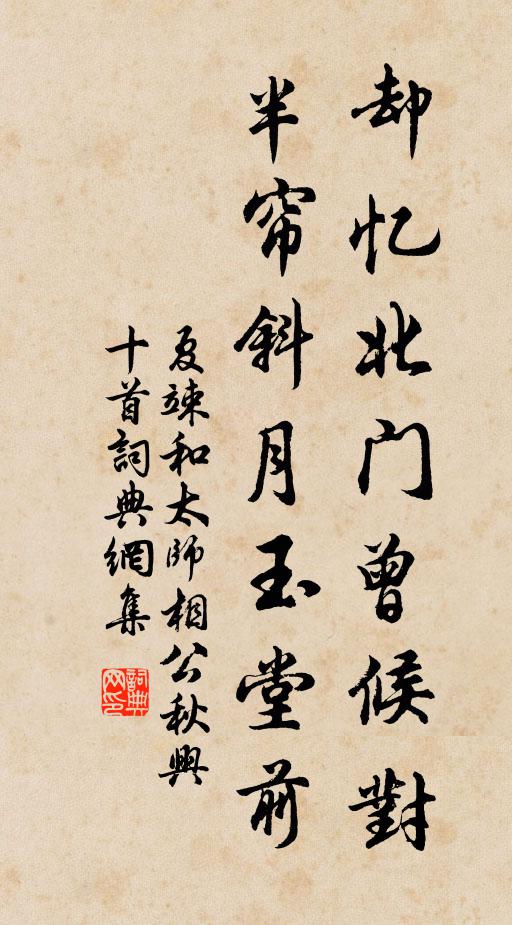 却忆北门曾候對
半帘斜月玉堂前
夏竦和太师相公秋興
十首詞典網集
詞典
网印